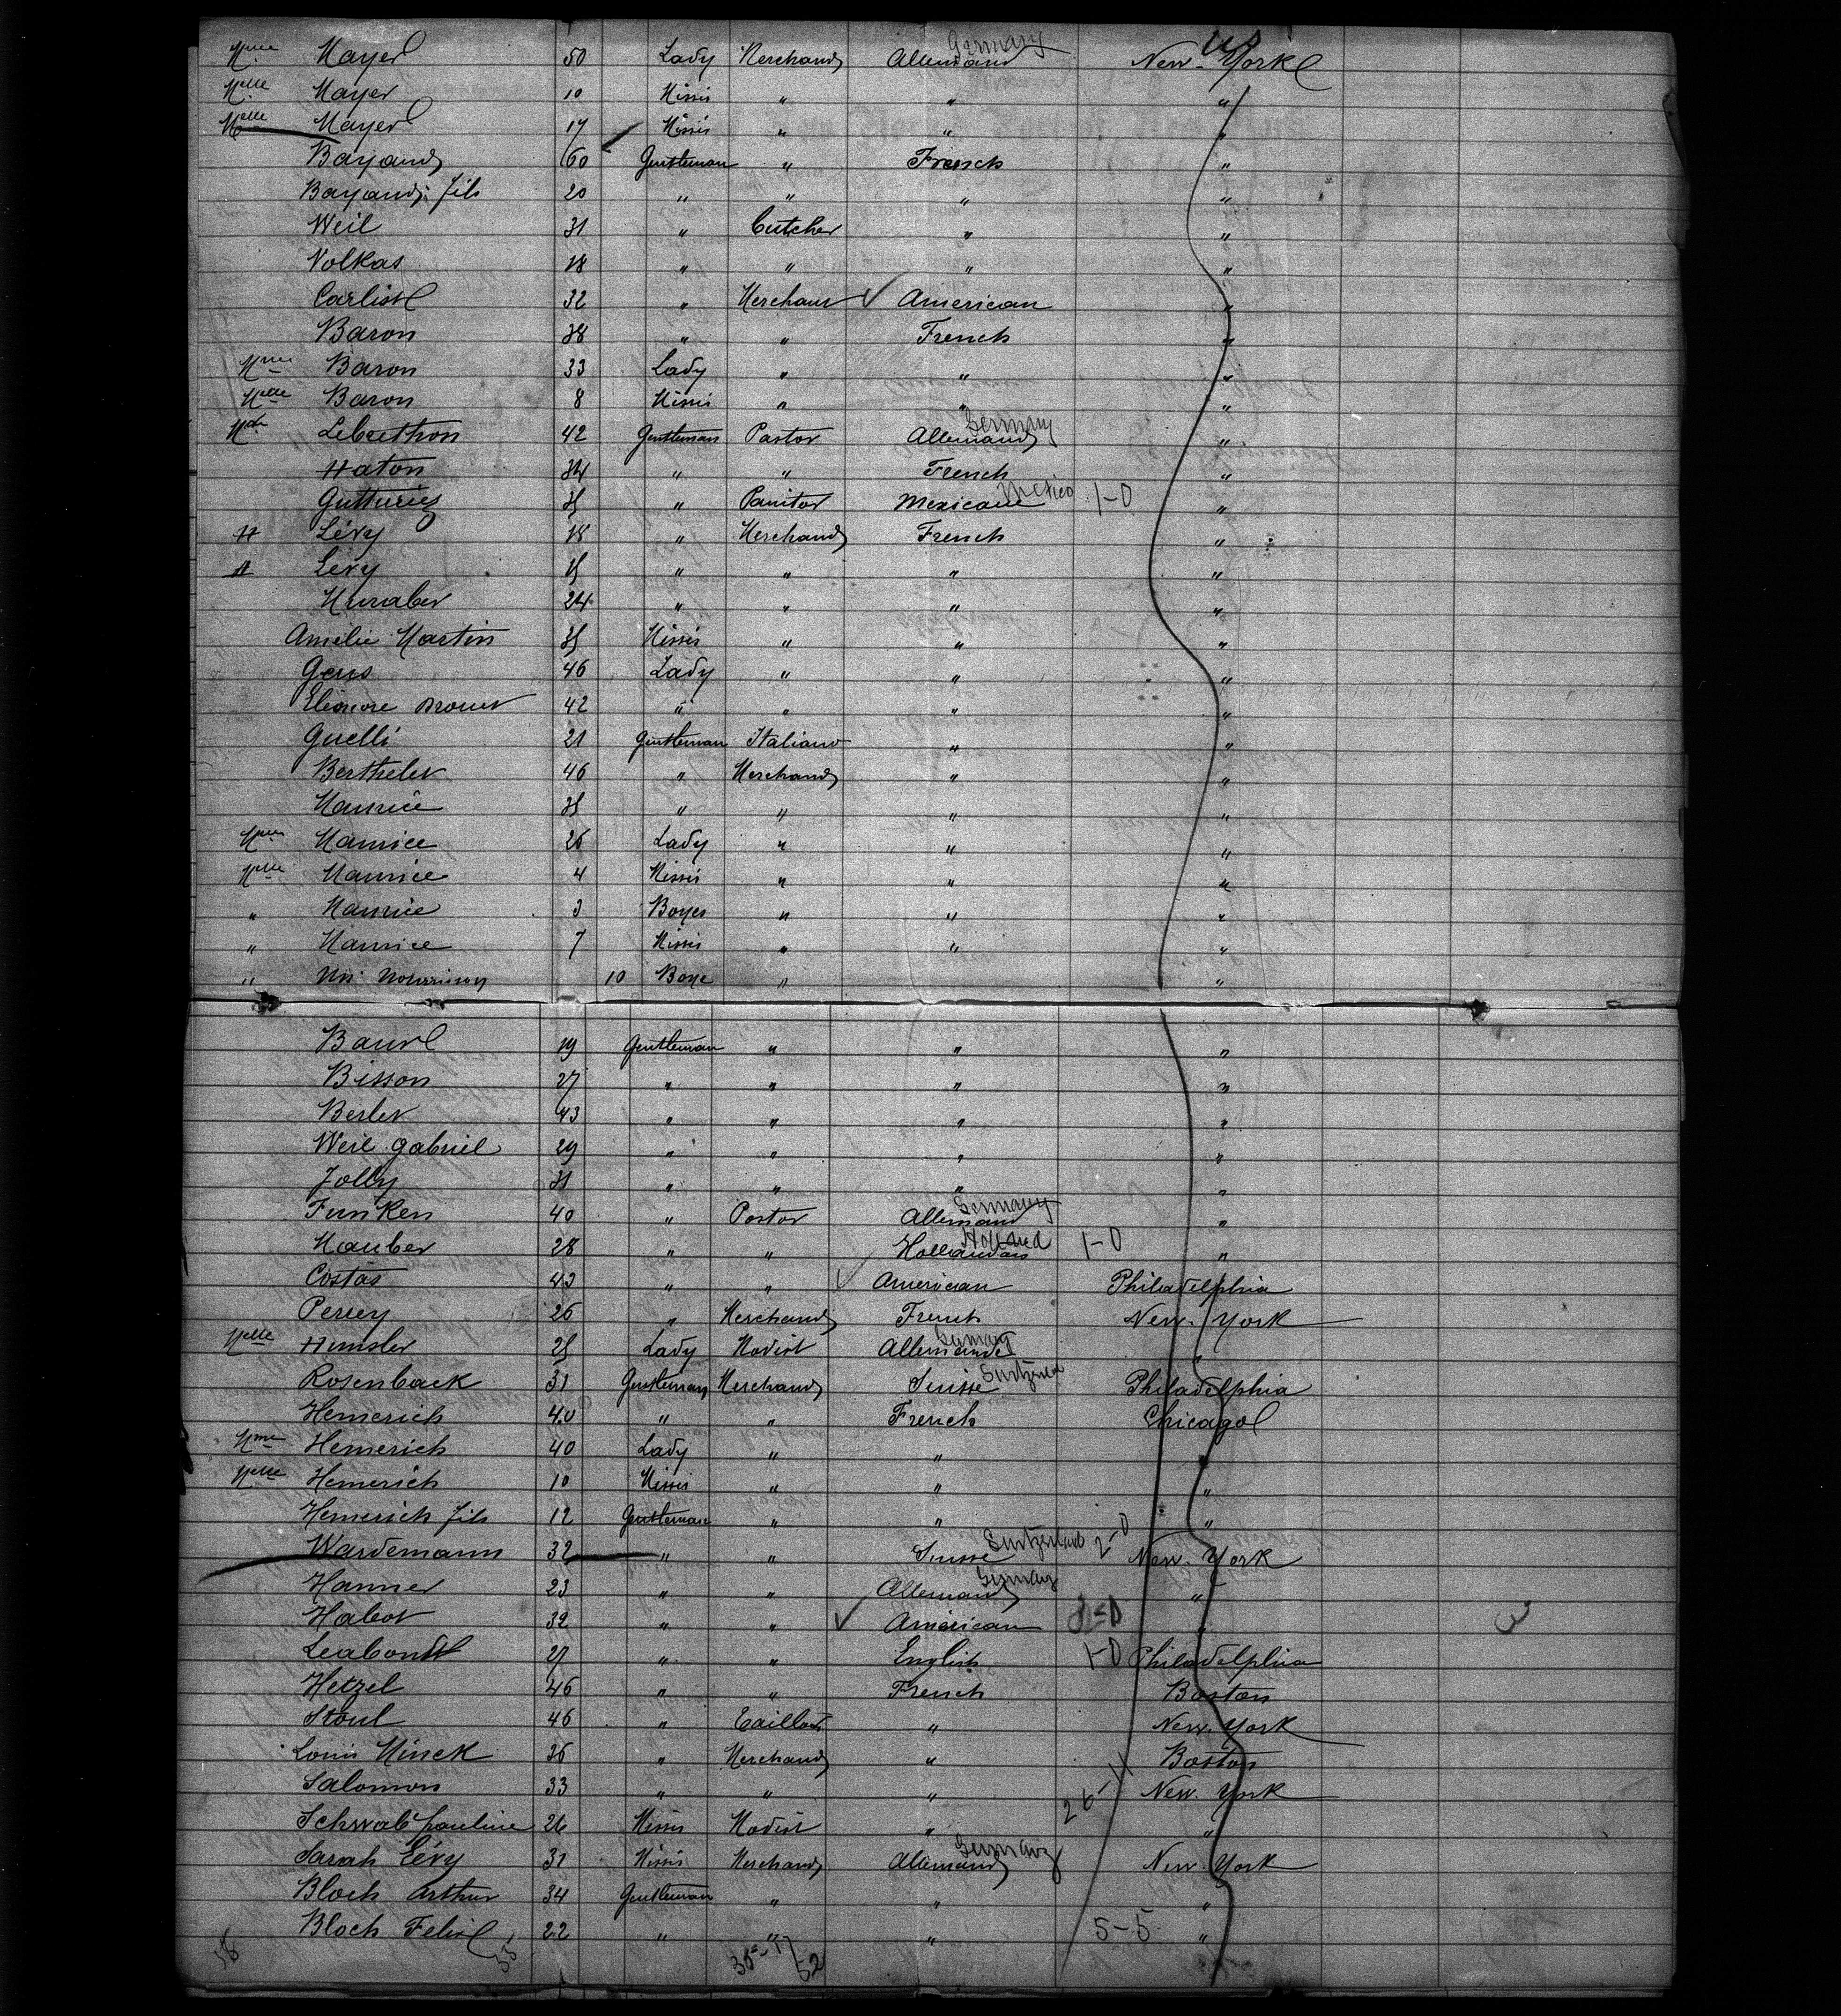 Mme Mayer 50 Lady Merchand Allemand Germany New-York
Melle Mayer 10 Missis " " "
Melle Mayer 17 Missis " " "
Bayand 60 Gentleman " French "
Bayand fils 20 " " " "
Weil 31 " Cutcher " "
Volkas 18 " " " "
Carlist 32 " Merchant American "
Baron 38 " " French "
Mme Baron 33 Lady " " "
Melle Baron 8 Missis " " "
Lebrethon 42 Gentleman Pastor Allemand Germany "
Haton 34 " " French "
Gutturiez 35 " Panitor Mexicane Mexico 1-0 "
H Lévy 18 " Merchand French "
A Lévy 35 " " " "
24 " " " "
Amélie Martin 35 Missis " " "
Gens 46 Lady " " "
Eléonore 42 " " " "
Guelli 21 Gentleman Italiano " "
Berthelet 46 " Merchand " "
Maurice 35 " " " "
Mme Maurice 26 Lady " " "
Melle Maurice 4 Missis " " "
" Maurice 3 Boyes " " "
" Maurice 7 Missis " " "
" Un Nourrisson 10 Boye " "
Baurl 19 Gentleman " " "
Bisson 27 " " " "
Berlet 43 " " " "
Weil Gabriel 29 " " " "
Jolly 31 " " " "
Funken 40 " Pastor Allemand Germany "
Mauber 28 " " Hollandais Holland 1-0 "
Costas 43 " " American Philadelphia
Perrey 26 " Merchand French New-York
Melle Himsler 25 Lady Modist Allemande Germany "
Rosenback 31 Gentleman Merchand Suisse Philadelphia
Hemerich 40 " " French Chicago
Mme Hemerich 40 Lady " " "
Melle Hemerich 10 Missis " " "
Hemerich fils 12 Gentleman " " "
Wardemann 32 " " Suisse Switzerland 2-0 New-York
Hanner 23 " " Allemand Germany "
Habot 32 " " American "
27 " " English 1-0 Philadelphia
Hetzel 46 " " French Boston
Stoul 46 " Taillor " New-York
Louis Minck 36 " Merchand " Boston
Salomon 33 " " " New-York
Schwab Pauline 26 Missis Modist " 26-11 "
Sarah Lévy 31 Missis Merchand Allemand Germany New-York
Bloch Arthur 34 Gentleman " " "
Bloch Felix 22 " " " 5-5 "
52